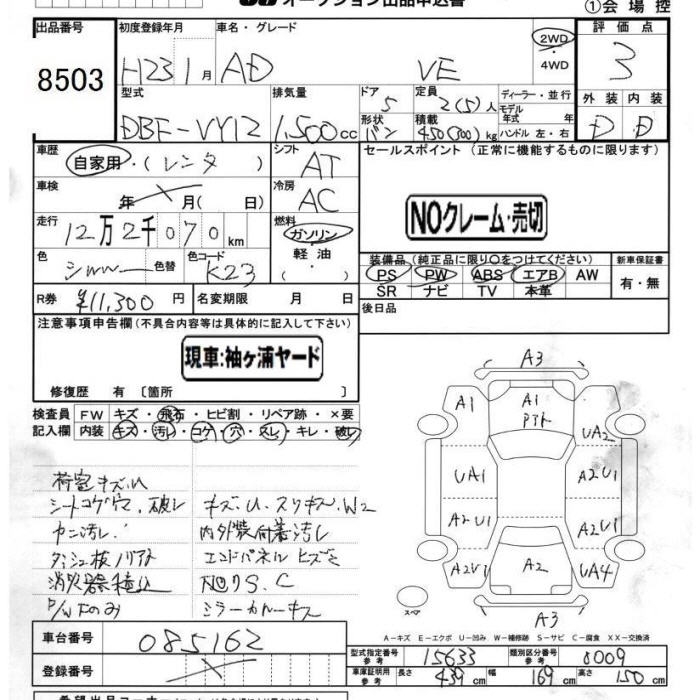 オークション出品申込書
①会場控
出品番号
8503
初度登録年月
H23 1月
車名・グレード
AD VE
2WD
・
4WD
評価点
3
外装 内装
D D
型式
DBF-VY12
排気量
1,500cc
ドア
5
定員
2(5)人
形状
バン
積載
450(300)kg
ディーラー・並行
モデル
年式 年
ハンドル 左・右
車歴
自家用・(レンタ)
シフト
AT
車検
年 月( 日)
冷房
AC
走行
12万2千070km
燃料
ガソリン
・
軽油
・
色
色替
色コード
K23
R券
¥11,300円
名変期限 月 日
セールスポイント (正常に機能するものに限ります)
NOクレーム・売切
装備品(純正品に限り○をつけてください)
PS PW ABS エアB AW
SR ナビ TV 本革
新車保証書
有・無
後日品
注意事項申告欄(不具合内容等は具体的に記入して下さい)
現車:袖ヶ浦ヤード
修復歴 有〔箇所 〕
検査員 FW キズ・飛石・ヒビ割・リペア跡・×要
記入欄 内装 キズ・汚レ・コゲ・穴・スレ・キレ・破レ
荷室キズ.U
シートコゲ穴.破レ
キズ.U.スリキズ.W2
カニ汚レ.
内外装付着汚レ
ダッシュ板ノリアト
消火器積込
P/Wドのみ
NOリS.C
A3
A1
A1
UA2
UA1
A2U1
A2U1
A2U1
A2U1
A2
UA4
A3
スペア
A-キズ E-エクボ U-凹み W-補修跡 S-サビ C-腐食 XX-交換済
車台番号
085162
登録番号
型式指定番号
参考
15633
類別区分番号
参考
0009
車庫証明用
参考
長さ 439cm 幅 169cm 高さ 150cm